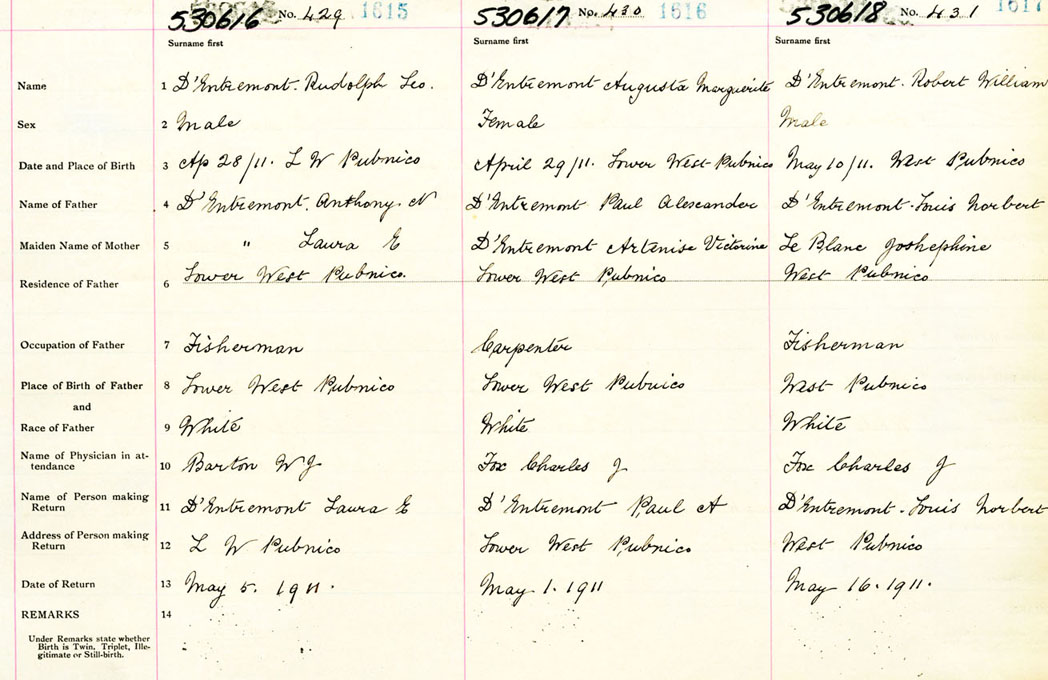 530616 No. 429 1615 530617 No. 430 1616 530618 No. 431 1617
Surname first Surname first Surname first
Name 1 D'Entremont. Rudolph Leo. D'Entremont Augusta Marguerite D'Entremont. Robert William
Sex 2 Male Female Male
Date and Place of Birth 3 Ap 28/11. L W Pubnico April 29/11. Lower West Pubnico May 10/11. West Pubnico
Name of Father 4 D'Entremont. Anthony. N D'Entremont Paul Alexander D'Entremont. Louis Norbert
Maiden Name of Mother 5 " Laura E D'Entremont Artenise Victorine Le Blanc Joshephine
Residence of Father 6 Lower West Pubnico. Lower West Pubnico West Pubnico
Occupation of Father 7 Fisherman Carpenter Fisherman
Place of Birth of Father 8 Lower West Pubnico Lower West Pubnico West Pubnico
and
Race of Father 9 White White White
Name of Physician in at-
tendance 10 Barton W J Fox Charles J Fox Charles J
Name of Person making
Return 11 D'Entremont Laura E D'Entremont Paul A D'Entremont. Louis Norbert
Address of Person making
Return 12 L W Pubnico Lower West Pubnico West Pubnico
Date of Return 13 May 5. 1911. May 1. 1911 May 16. 1911.
REMARKS 14
Under Remarks state whether
Birth is Twin, Triplet, Ille-
gitimate or Still-birth.